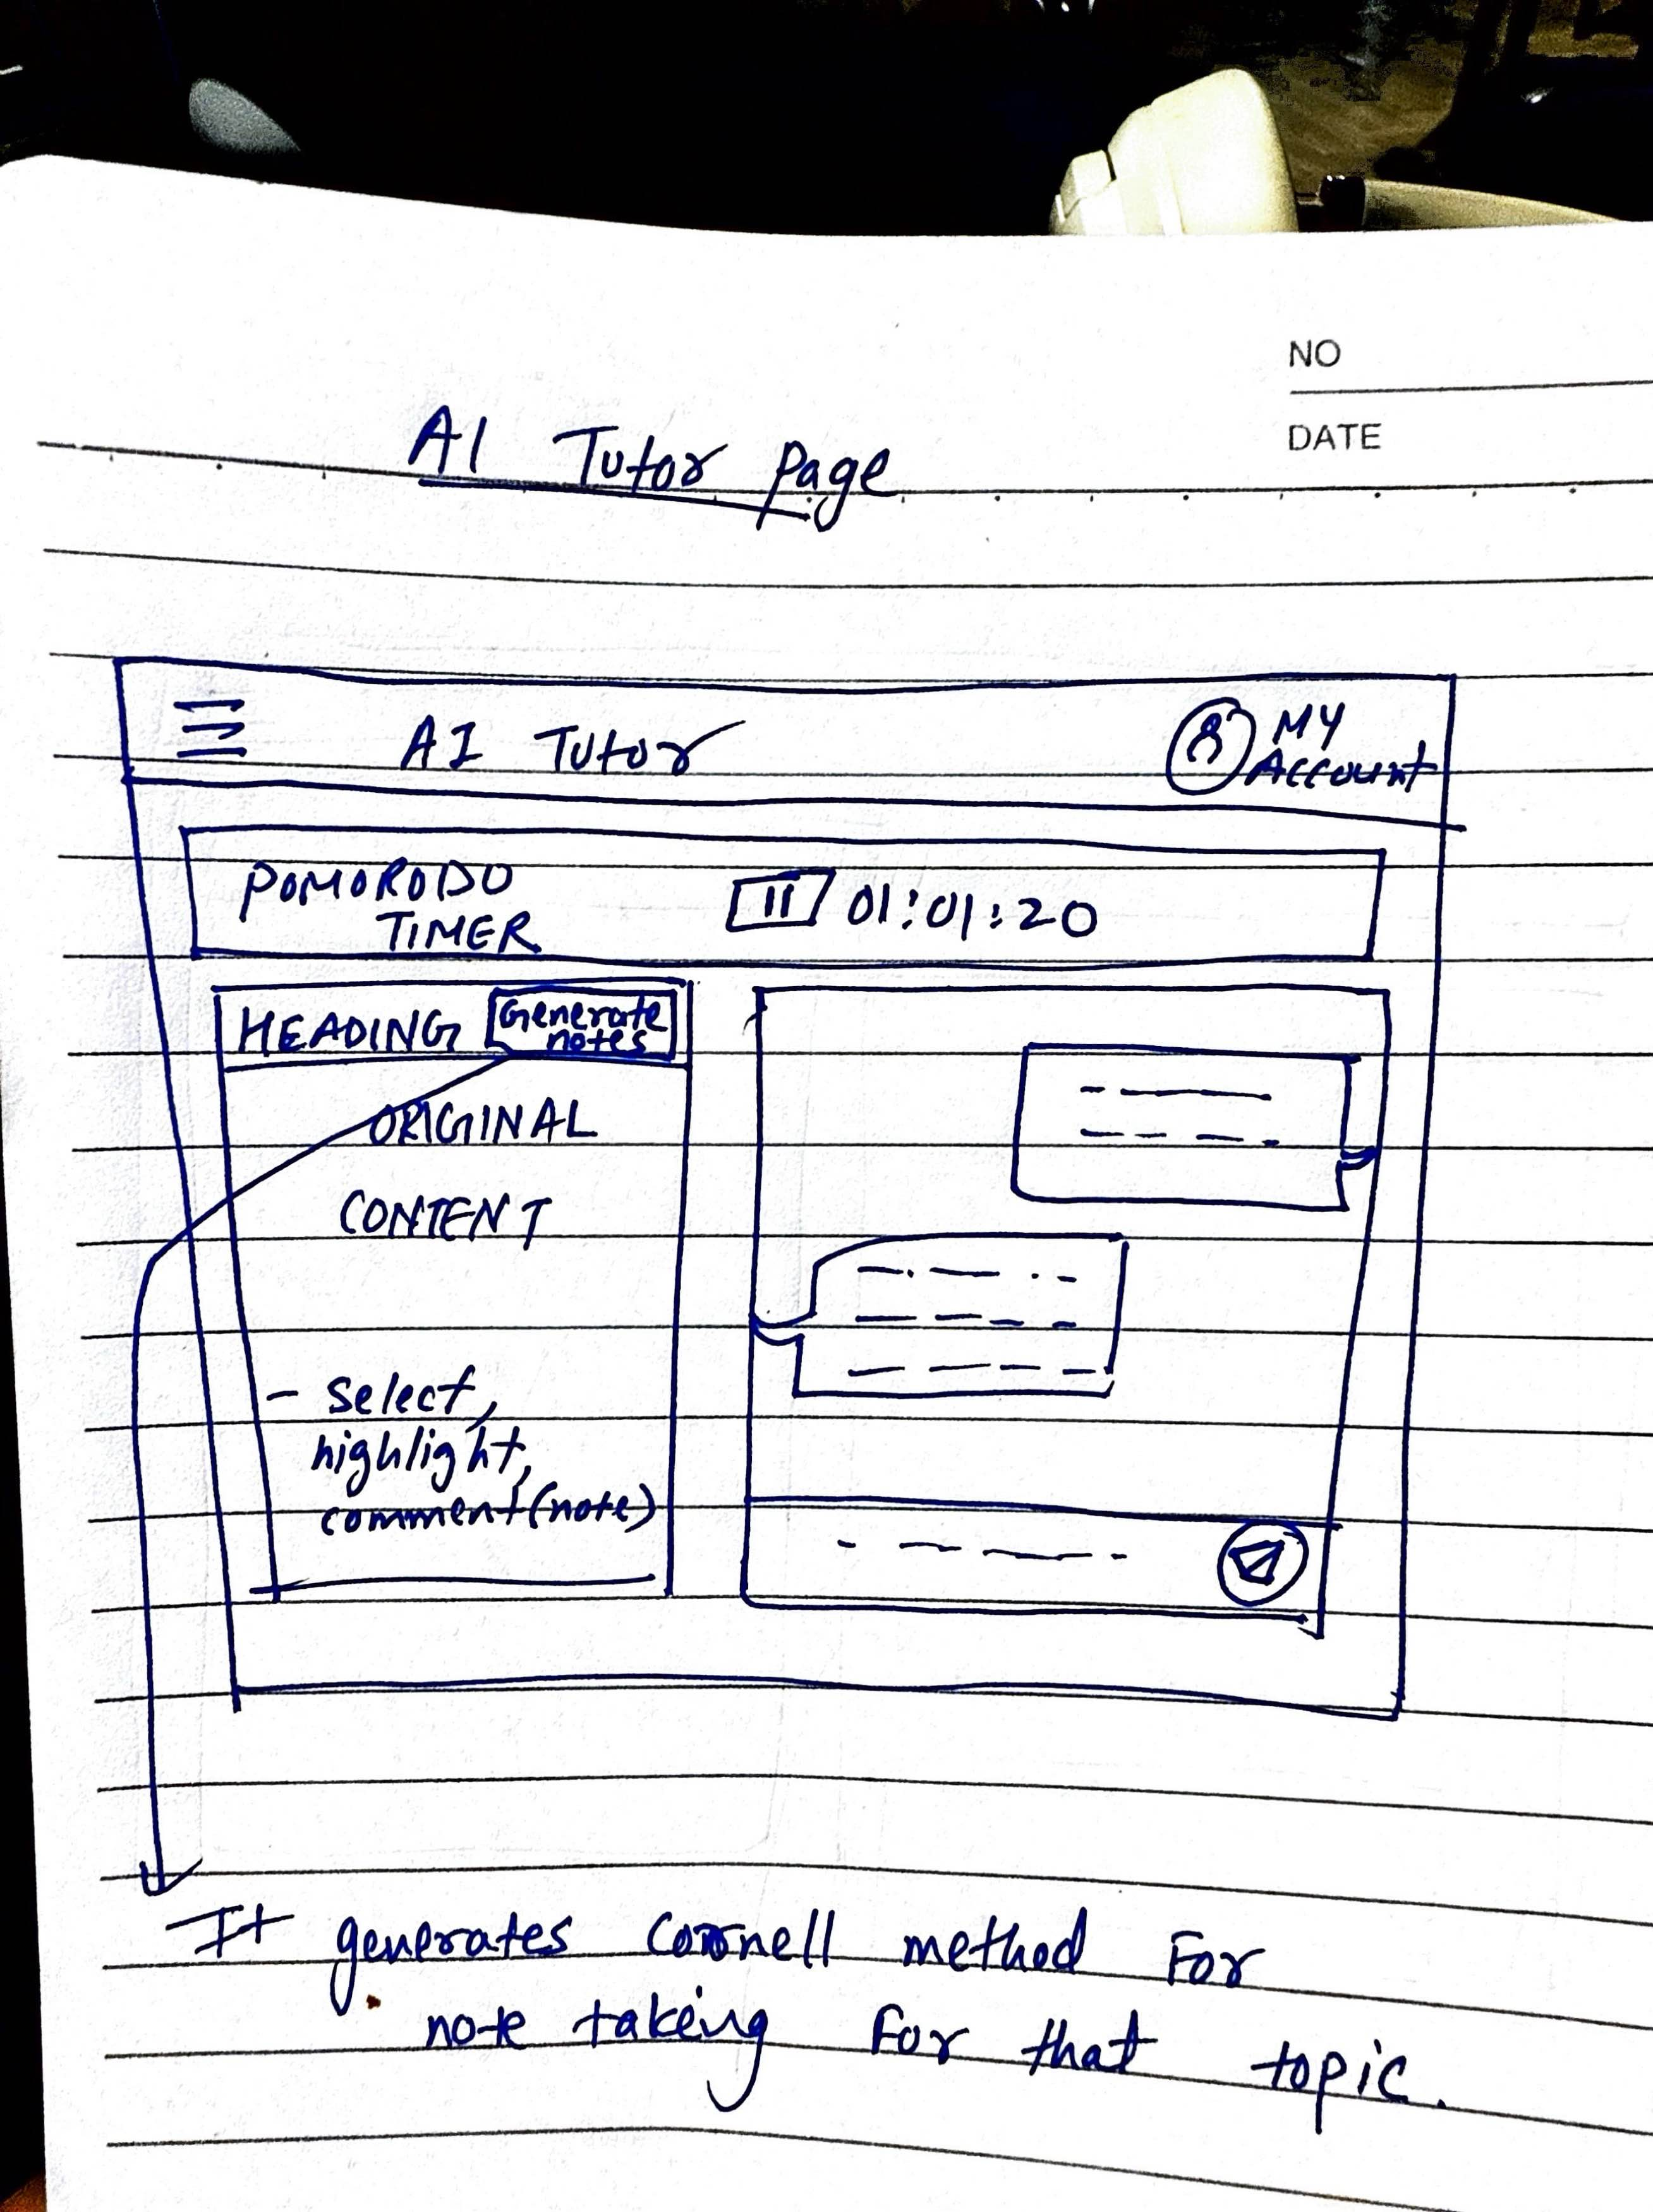 NO
DATE
AI Tutor Page
AI Tutor
MY
Account
POMORODO
TIMER
01:01:20
HEADING
Generate
notes
ORIGINAL
CONTENT
- select,
highlight,
comment (note)
It generates cornell method For
note taking For that topic.